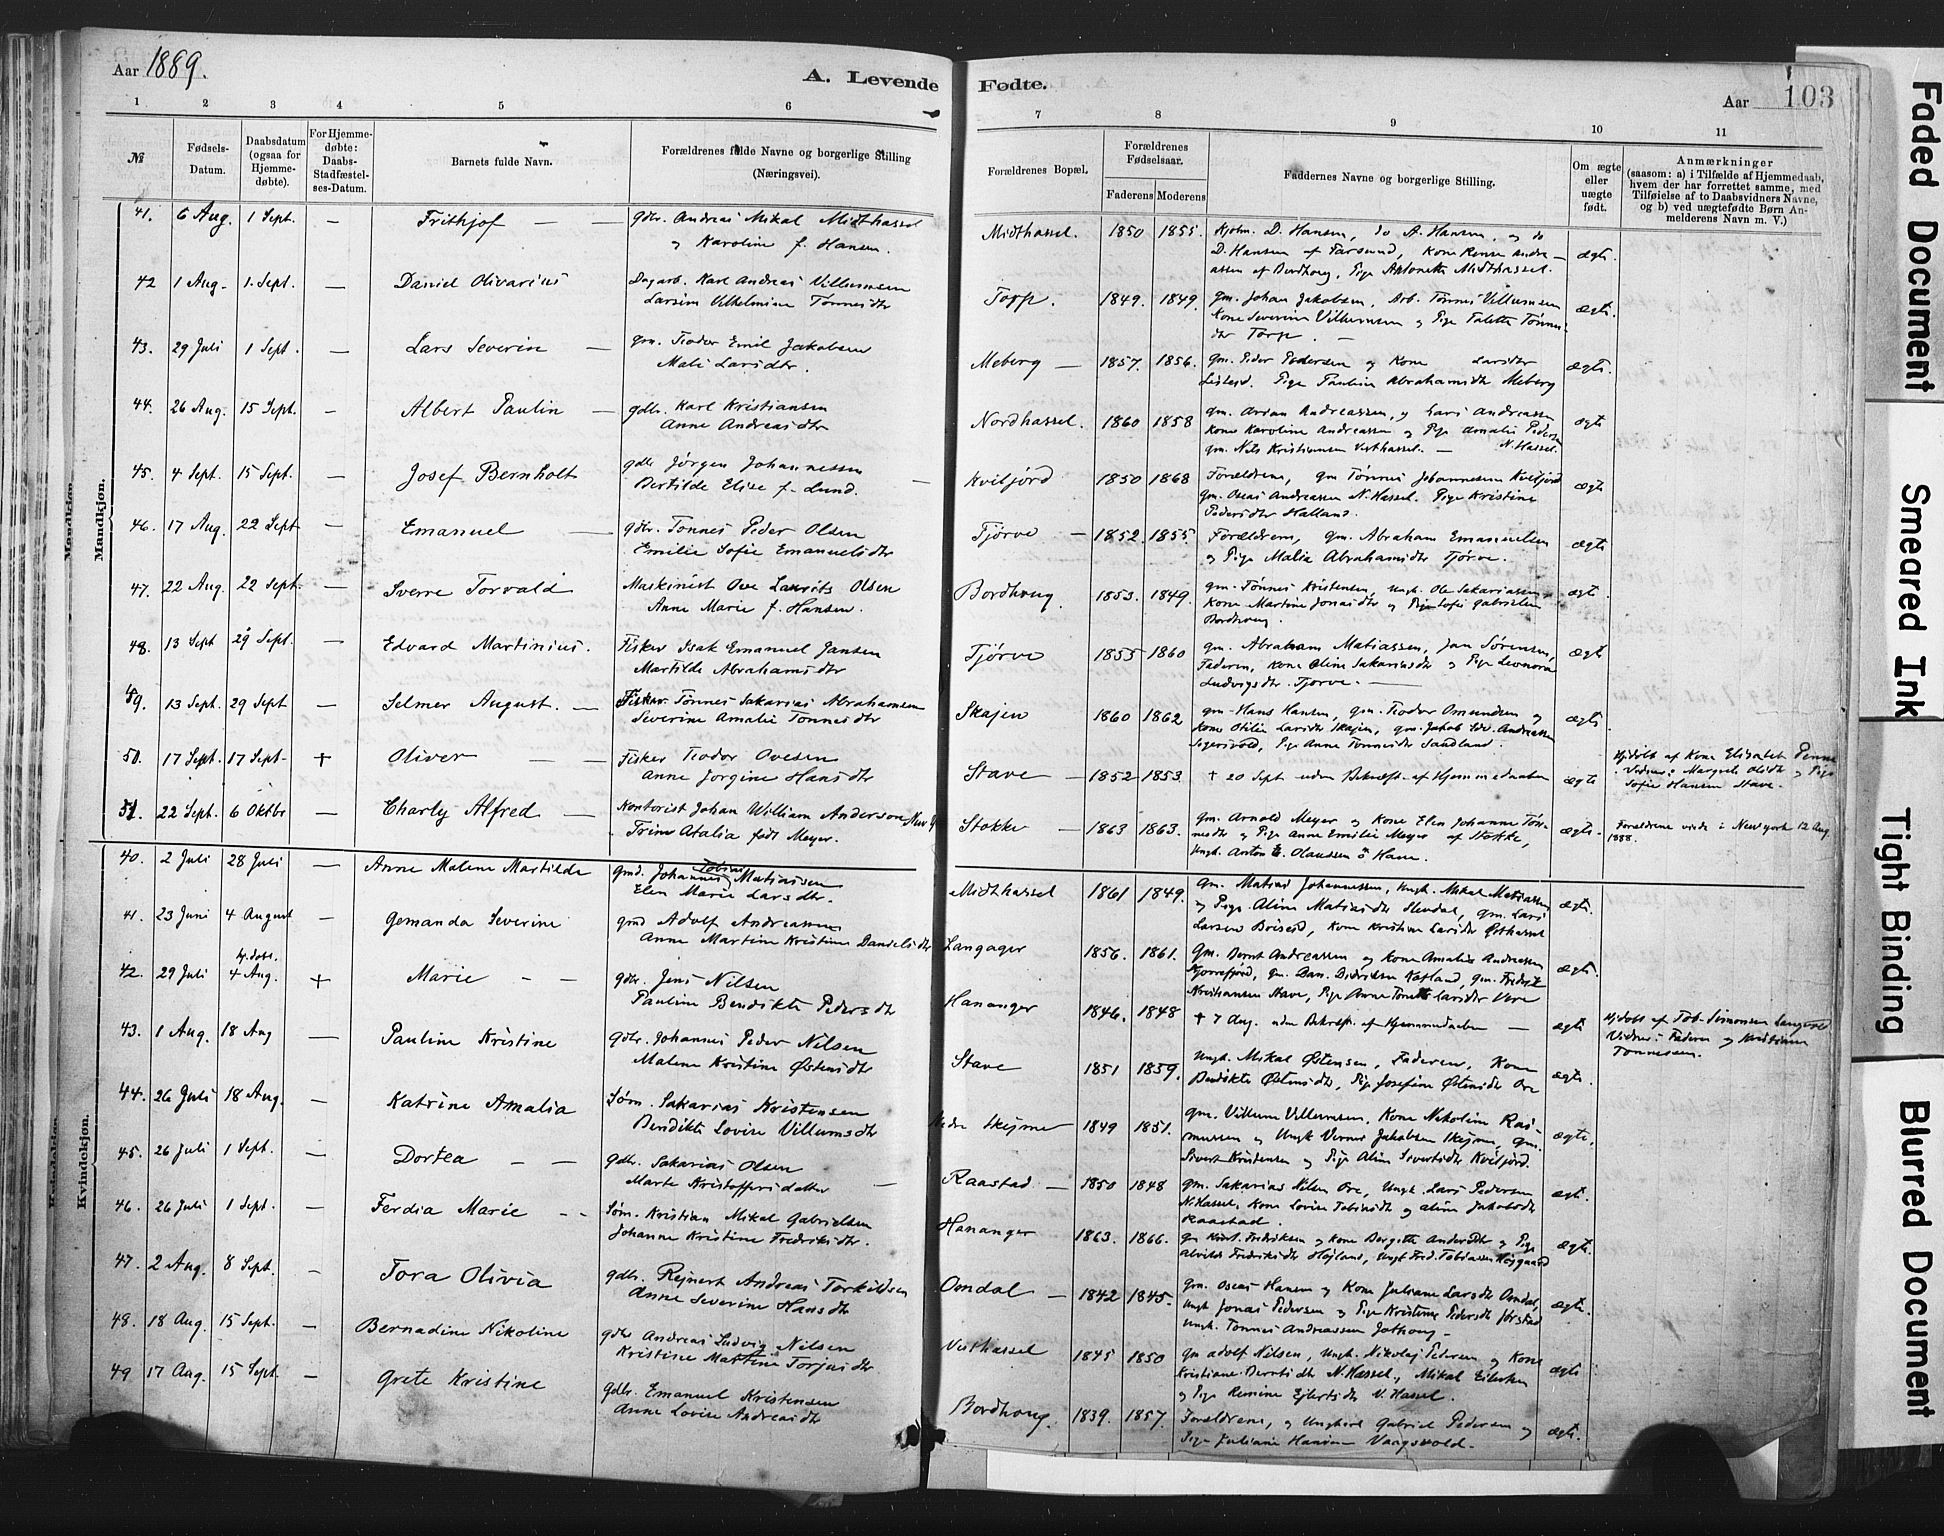 Aar 1889.
A. Levende
Fødte.
Aar
103
1 2 3 4 5 6
7 8 9 10 11
№
Fødsels-
Datum.
Daabsdatum
(ogsaa for
Hjemme-
døbte).
For Hjemme-
døbte:
Daabs-
Stadfæstel-
ses-Datum.
Barnets fulde Navn.
Forældrenes fulde Navne og borgerlige Stilling
(Næringsvei).
Forældrenes Bopæl.
Forældrenes
Fødselsaar.
Faderens Moderens
Faddernes Navne og borgerlige Stilling.
Om ægte
eller
uægte
født.
Anmærkninger
(saasom: a) i Tilfælde af Hjemmedaab,
hvem der har forrettet samme, med
Tilføielse af to Daabsvidners Navne,
og b) ved uægtefødte Børn An-
melderens Navn m. V.)
Mandkjøn.
41. 6 Aug. 1 Sept. — Frithjof — — gdbr. Andreas Mikal Midthassel
og Karoline f. Hansen.
Midthassel. 1850 1855. D. Hansen, do A. Hansen, og do
D. Hansen af Farsund, Kone Andre-
assen af Bordhoug, Pige Antonette Midthassel. ægte.
42 1 Aug. 1. Sept. — Daniel Olivarius Dagarb. Karl Andreas Villumsen
Larsine Vilhelmine Tønnesdtr
Torp. 1849. 1849. gm. Johan Jakobsen, Arb. Tønnes Villumsen
Kone Severine Villumsen og Pige Talette Tønnes-
dtr Torp. — ægte.
43. 29 Juli 1 Sept. — Lars Severin — gm. Teodor Emil Jakobsen
Mali Larsdtr.
Meberg — 1857. 1856. gm. Peder Pedersen og Kone Larsdtr
Pige Pauline Abrahamsdtr Meberg ægte.
44. 26 Aug. 15 Sept. — Albert Paulin — gdbr. Karl Kristiansen
Anne Andreasdtr
Nordhassel. 1860 1858 gm. Andreassen, og Lars Andreassen
Kone Karoline Andreassen og Pige Amalie Pedersen
gm. Nils Kristiansen Vesthassel. — N. Hassel. ægte
45. 4 Sept. 15 Sept. — Josef Bernholt gdbr Jørgen Johannessen
Bertilde Elise f. Lund. —
Kviljord 1850 1868 Forældrene, gm Tønnes Johannessen Kviljord
gm. Oseas Andreassen N. Hassel. Pige Kristine
Pedersdtr Halland. ægte
46. 17 Aug. 22 Sept — Emanuel — gdbr. Tønnes Peder Olsen
Emilie Sofie Emanuelsdtr
Tjørve — 1852. 1855. Forældrene, gm. Abraham Emanuelsen
og Pige Malia Abrahamsdtr Tjørve. ægte
47. 22 Aug. 22 Sept. — Sverre Torvald Maskinist Ove Laurits Olsen
Anne Marie f. Hansen.
Bordhoug. 1853. 1849. gm. Tønnes Kristensen, ungk. Ole Sakariassen
Kone Martine Jonasdtr og Pige Sofie Gabrielsen
Bordhoug. ægte.
48. 13 Sept 29 Sept. — Edvard Martinius. Fisker Isak Emanuel Jansen
Martilde Abrahamsdtr
Tjørve 1855 1860 gm. Abraham Matiassen, Jan Sørensen,
Faderen, Kone Oline Sakariasdtr og Pige Leonora
Ludvigsdtr. Tjørve. — ægte
49. 13 Sept. 29 Sept — Selmer August. — Fisker Tønnes Sakarias Abrahamsen
Severine Amalie Tønnesdtr
Skajen 1860 1862 gm. Hans Hansen, gm. Teodor Omundsen og
Kone Otilie Larsdtr Skajen, gm. Jakob Andreassen
Segersvold, Pige Anne Tønnesdtr Sandland. ægte
50. 17 Sept. 17 Sept. + Oliver — — Fisker Teodor Ovesen
Anne Jørgine Hansdtr
Stave — 1852 1853. + 20 Sept uden Bekræft. af Hjemmedaaben ægte Hj.døbt af Kone Elisabet Penne
Vidner: Margrete og Pige
Sofie Hansen Stave.
51. 22 Sept. 6 Oktbr — Charly Alfred — Kontorist Johan William Anderson
Trine Atalia født Meyer.
Stokke 1863 1863. gm. Arnold Meyer og Kone Elen Johanne Tøn-
nesdtr og Pige Anne Emilie Meyer af Stokke,
Ungk. Anton E. Olaussen Hane. ægte. Forældrene viede i New york 12 Aug.
1888.
Kvindekjøn.
40. 2 Juli 28 Juli — Anne Malene Martilde gmd. Johannes Tobias Matiassen
Elen Marie Larsdtr.
Midthassel 1861 1849. gm. Matias Johannessen, Ungk. Mikal Matiassen
og Pige Aline Matiasdtr gm. Lars
Larsen Kone Kristine Larsdtr Østhassel ægte.
41. 23 Juni 4 August — Gemanda Severine gmd Adolf Andreassen
Anne Martine Kristine Danielsdtr
Langager 1856. 1861. Gm. Bernt Andreassen og Kone Amalie Andreassen
gm. Dan. Didriksen gm. Fredrik
Kristiansen Stave, Pige Anne Larsdtr Vere ægte.
42. 29 Juli hj.døbt. 4 Aug. + Marie — — gdbr. Jens Nilsen
Pauline Bendikte Pedersdtr
Hananger 1846. 1848 + 7 Aug. uden Bekræft. af Hjemmedaaben — ægte Hj.døbt af Tob. Simonsen
Vidner: Faderen og Kristine
Tønnessen.
43. 1 Aug. 18 Aug — Pauline Kristine gdbr. Johannes Peder Nilsen
Malene Kristine Østensdtr
Stave 1851 1859. Ungk. Mikal Østensen, Faderen, Kone
Bendikte Østensdtr, Pige Josefine Østensdtr Ore ægte.
44. 26 Juli 18 Aug. — Katrine Amalia Søm. Sakarias Kristensen
Bendikte Lovise Villumsdtr
Nedre Skejme 1849 1851. gm. Villum Villumsen, Kone Nikoline Ras-
mussen og Ungk Verner Jakobsen Skejme, gm.
Sivert Kristensen og Pige Aline Sivertsdtr Kviljord. ægte.
45. 26 Juli 1 Sept. — Dortea — — gdbr. Sakarias Olsen
Marte Kristoffersdatter —
Raastad — 1850 1848 gm. Sakarias Nilsen Ore, Ungk. Lars Pedersen
N. Hassel, Kone Lovise Tobiasdtr og Aline Jakobsdtr
Raastad. ægte.
46. 26 Juli 1 Sept. — Ferdia Marie — Søm. Kristian Mikal Gabrielsen
Johanne Kristine Fredriksdtr.
Hananger 1863. 1866. gm Krist. Fredriksen og Kone Bergitte Andersdtr og Pige
Alvilde Fredriksdtr Højland, Ungk Fred. Tobiassen Højgaard ægte.
47. 2 Aug. 8 Sept. — Tora Olivia gdbr. Rejnert Andreas Torkildsen
Anne Severine Hansdtr
Omdal — 1842 1845. gm. Oseas Hansen og Kone Juliane Larsdtr Omdal,
Ungk Jonas Pedersen og Pige Kristine Pedersdtr Jørstad
Ungk. Tønnes Andreassen Jøthoug — ægte.
48. 18 Aug. 15 Sept. — Bernadine Nikoline gdbr Andreas Ludvig Nilsen
Kristine Martine Torjusdtr
Vesthassel 1845 1850 gm Adolf Nilsen, Ungk. Nikolaj Pedersen og Kone
Kristiane Berntsdtr N. Hassel, Mikal Eilertsen
og Pige Remine Ejlertsdtr V. Hassel. ægte
49 17 Aug. 15 Sept. — Grete Kristine gdbr. Emanuel Kristensen
Anne Lovise Andreasdtr
Bordhoug. 1839. 1857. Forældrene, og Ungkarl Gabriel Pedersen og
Pige Juliane Hansen Vaagsvold. ægte.
Faded Document
Smeared Ink
Tight Binding
Blurred Document